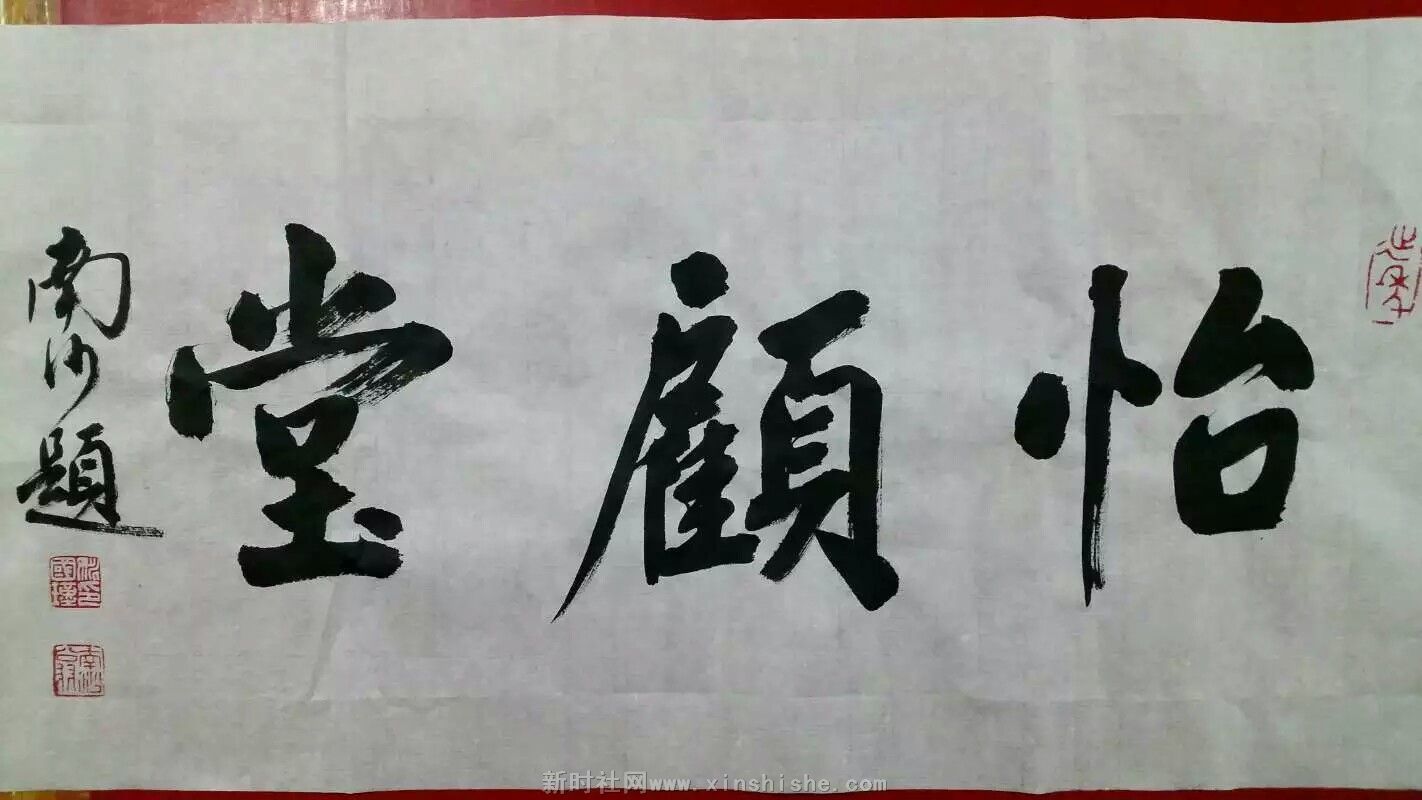 怡顧堂
南沙題
新时社网www.xinshishe.com